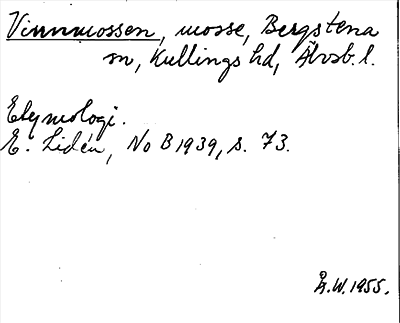 Vinnmossen, mosse, Bergstena
sn, Kullings hd, Älvsb. l.
Etymologi.
E. Lidén, No B 1939, s. 73.
Å.W. 1955.